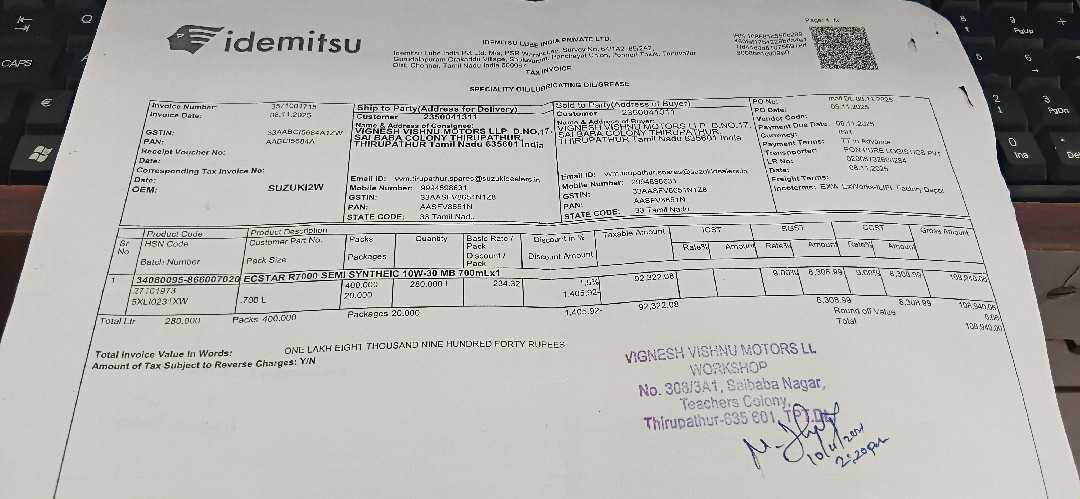 idemitsu
IDEMITSU LUBE INDIA PRIVATE LTD.
TAX INVOICE
SPECIALITY OIL/LUBRICATING OIL/GREASE
Invoice Number:
Invoice Date: 08.11.2025
GSTIN:
PAN: AABCI5684A
Receipt Voucher No:
Date:
Corresponding Tax Invoice No:
Date:
OEM: SUZUKI2W
Ship to Party(Address for Delivery)
Customer 2350041311
Name & Address of Consignee
VIGNESH VISHNU MOTORS LLP D.NO.17,
SAI BABA COLONY THIRUPATHUR,
THIRUPATHUR Tamil Nadu 635601 India
Email ID: vvm.tirupathur.spares@suzukidealers.in
Mobile Number: 9994898631
GSTIN: 33AASFV8651N1Z8
PAN: AASFV8651N
STATE CODE: 33 Tamil Nadu
Sold to Party(Address of Buyer)
Customer 2350041311
Name & Address of Buyer
VIGNESH VISHNU MOTORS LLP D.NO.17,
SAI BABA COLONY THIRUPATHUR,
THIRUPATHUR Tamil Nadu 635601 India
Email ID: vvm.tirupathur.spares@suzukidealers.in
Mobile Number: 9994898631
GSTIN: 33AASFV8651N1Z8
PAN: AASFV8651N
STATE CODE: 33 Tamil Nadu
PO No:
PO Date: 05.11.2025
Vendor Code:
Payment Due Date:
Currency:
Payment Terms: TT in Advance
Transporter: PON PURE LOGISTICS PVT
LR No:
Date: 08.11.2025
Freight Terms:
Incoterms:
Sr No
Product Code
HSN Code
Batch Number
Product Description
Customer Part No.
Pack Size
Packs
Packages
Quantity
Basic Rate / Pack
Discount / Pack
Discount in %
Discount Amount
Taxable Amount
IGST
Rate% Amount
SGST
Rate% Amount
CGST
Rate% Amount
Gross Amount
1 34080095-866007020 ECSTAR R7000 SEMI SYNTHEIC 10W-30 MB 700mLx1
27101973 400.000 280.000 L 234.32 1.5% 92,322.08 9.00% 8,308.99 9.00% 8,308.99 108,940.06
5XLI0231XW .700 L 20.000 1,405.92-
Total Ltr 280.000 Packs 400.000 Packages 20.000 1,405.92- 92,322.08 8,308.99 8,308.99 108,940.06
Round off Value 0.06
Total 108,940.00
Total Invoice Value In Words: ONE LAKH EIGHT THOUSAND NINE HUNDRED FORTY RUPEES
Amount of Tax Subject to Reverse Charges: Y/N
VIGNESH VISHNU MOTORS LL
WORKSHOP
No. 308/3A1, Saibaba Nagar,
Teachers Colony,
Thirupathur-635 601, TPT.Dt
2:20pm
CAPS
Q
€
8
9
PgUp
2
3
PgDn
0
Ins
Del